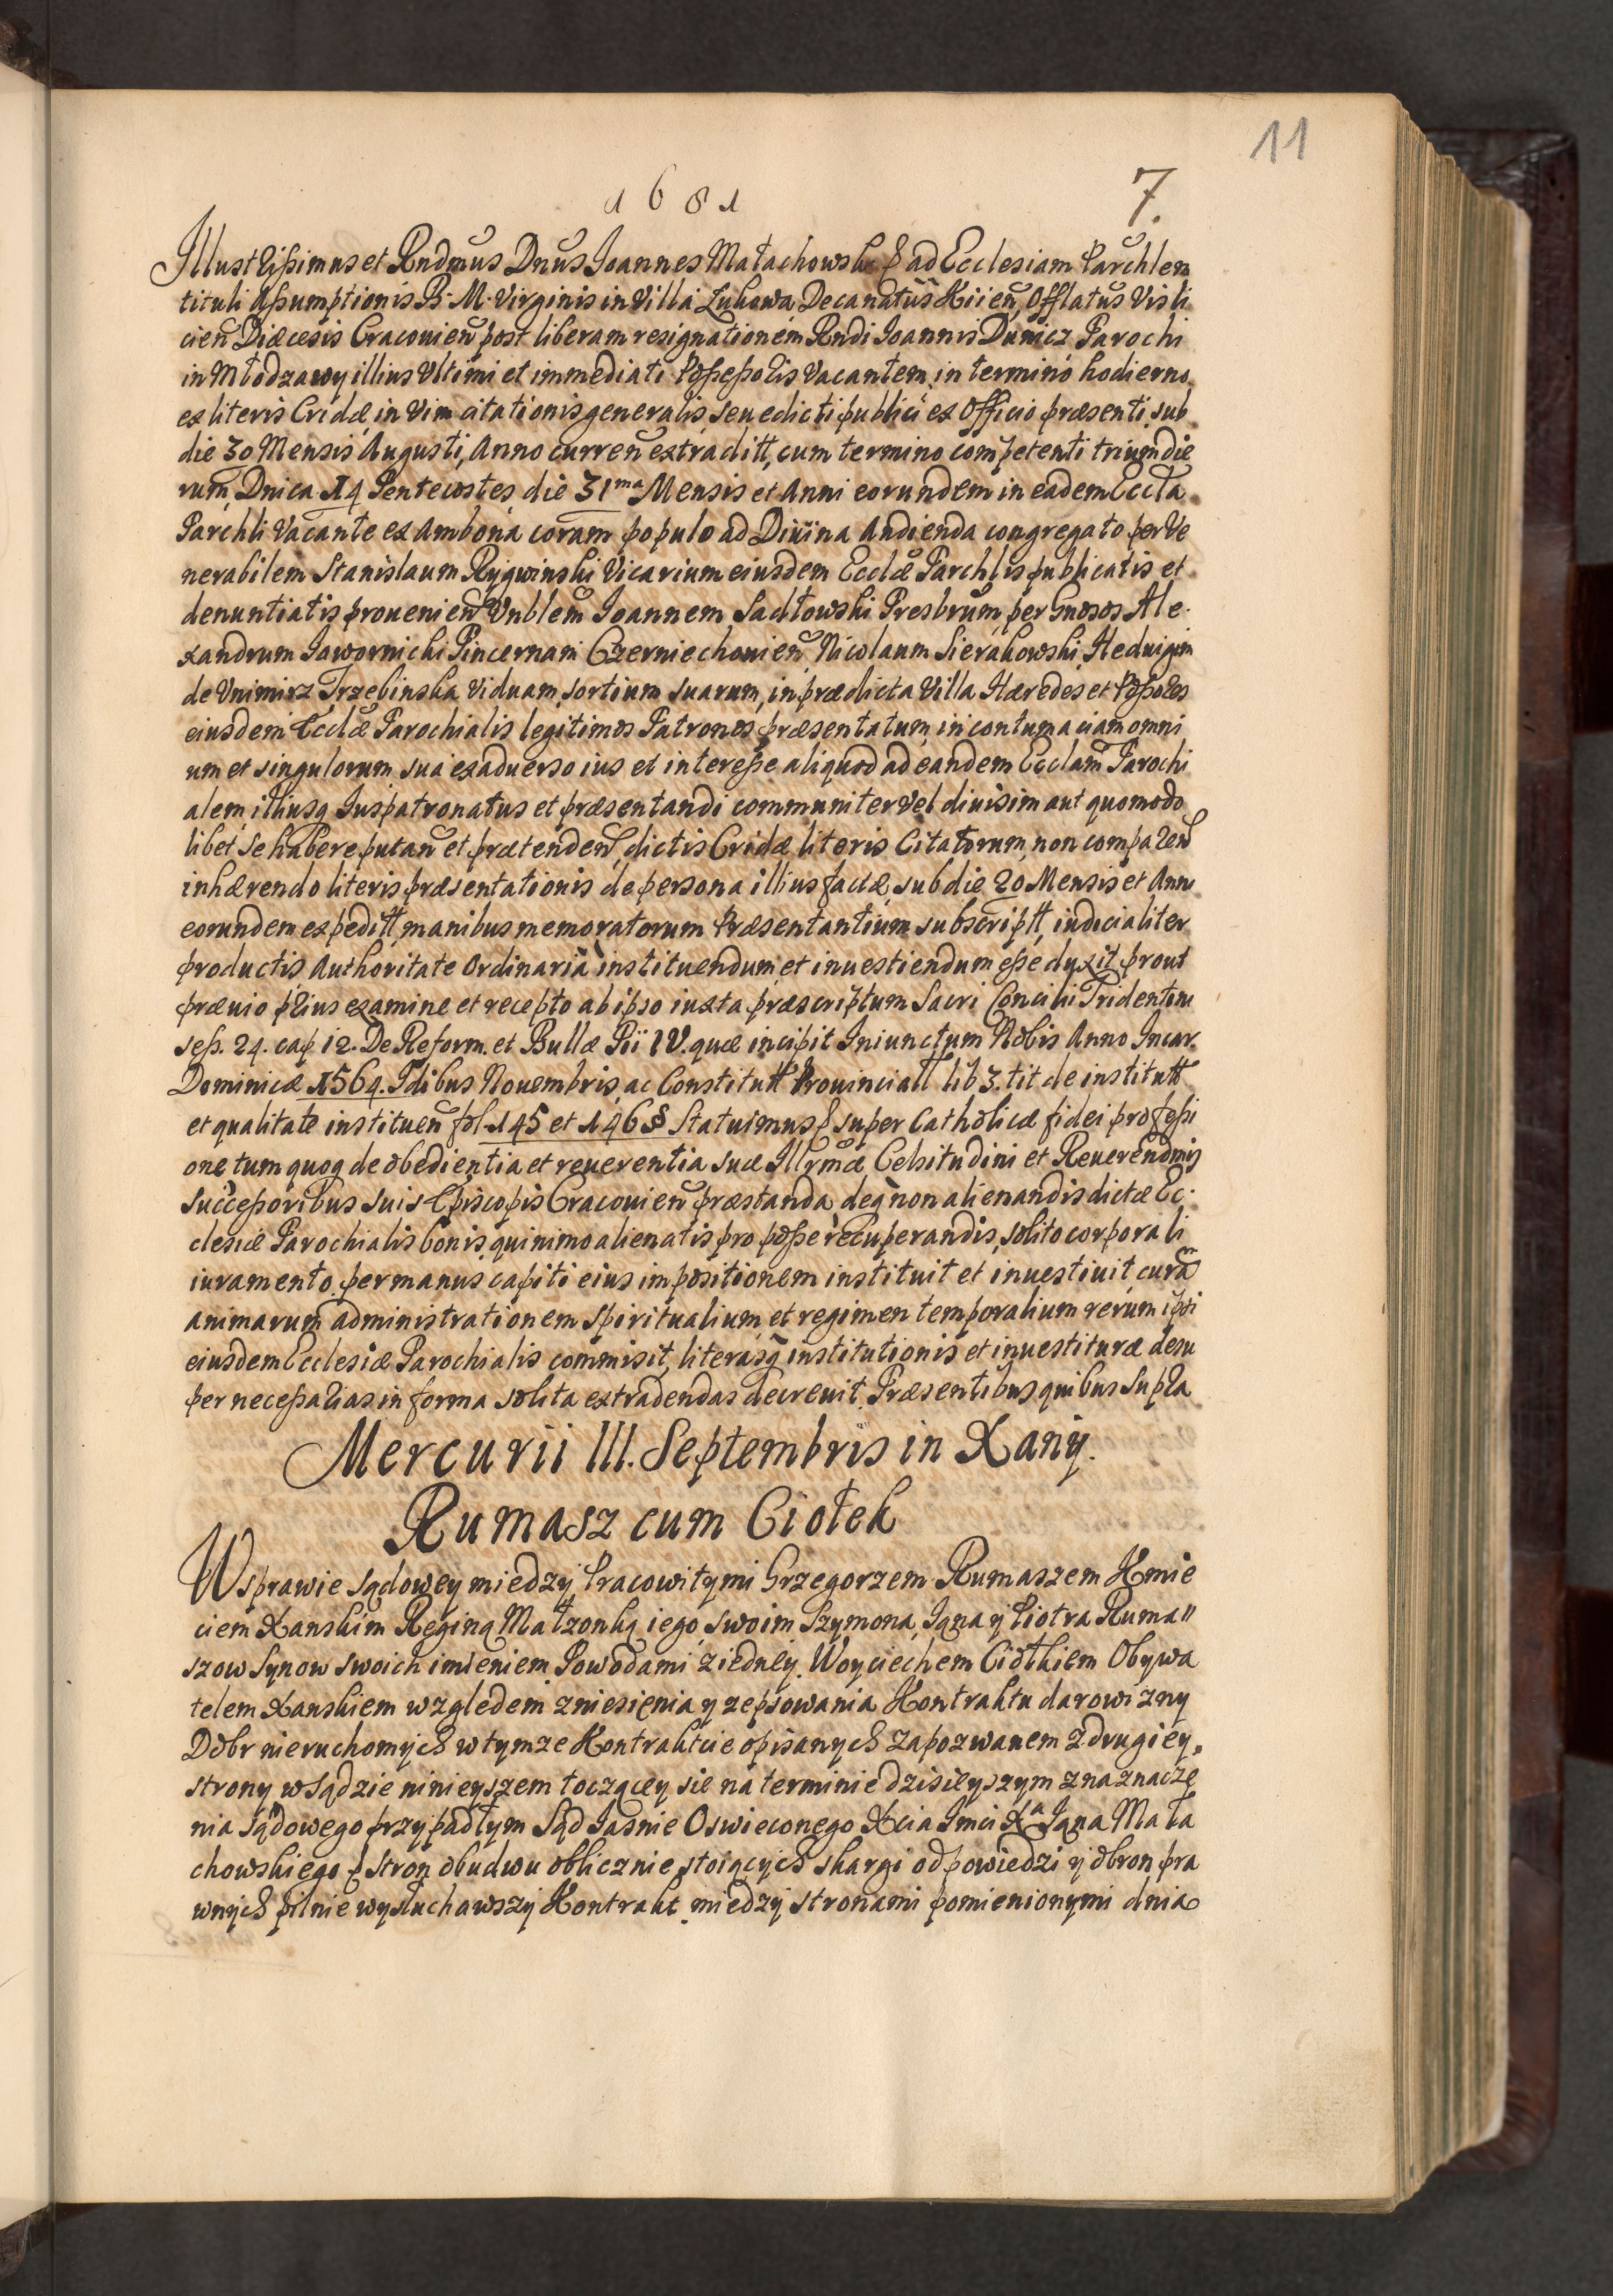 11
1681
7.
Illustrissimus et Rndmus Dnus Joannes Małachowski & ad Ecclesiam Parchlem
tituli Assumptionis B. M. Virginis in Villa Zukowa Decanatus Kiien Offlatus Visli
cien Diæcesis Cracouien post liberam resignationem Rndi Joannis Dunicz Parochi
in Młodzawy illius Vltimi et immediati Possessoris Vacantem in termino hodierno
ex literis Cridæ in Vim citationis generalis seu edicti publici ex Officio præsenti sub
die 30 Mensis Augusti, Anno curren extraditt, cum termino competenti trium die
rum, Dnica 14 Pentecostes die 31ma Mensis et Anni eorundem in eadem Eccla
Parchli Vacante ex Ambona coram populo ad Diuina Audienda congregato per Ve
nerabilem Stanislaum Rygwinski Vicarium eiusdem Ecclæ Parchlis publicatis et
denuntiatis prouenien Vnblem Joannem Sadłowski Presbrum per Gnosos Ale-
xandrum Jawornicki Pincernam Czerniechouien Nicolaum Sierakowski Heduigim
de Vnimirz Trzebinska Viduam, sortium suarum, in prædicta Villa Hæredes et Possores
eiusdem Ecclæ Parochialis legitimos Patronos præsentatum, in contumaciam omni
um et singulorum sua ex aduerso ius et interesse aliquod ad eandem Ecclam Parochi
alem, illiusq Juspatronatus et præsentandi communiter vel diuisim aut quomodo
libet Se habere putan et prætenden, dictis Cridæ literis Citatorum, non comparen
inhærendo literis præsentationis de persona illius factæ, sub die 20 Mensis et Anni
eorundem expeditt, manibus memoratorum Præsentantium subscriptt, iudicialiter
productis Authoritate Ordinaria instituendum et inuestiendum esse duxit prout
præuio prius examine et recepto ab ipso iuxta præscriptum Sacri Concilii Tridentini
sess. 24. cap 12. De Reform. et Bullæ Pii IV. quæ incipit Iniunctum Nobis Anno Incar.
Dominicæ 1564. Idibus Nouembris, ac Constitutt Prouinciall lib 3. tit de institutt
et qualitate instituen fol 145 et 146 § Statuimus & super Catholicæ fidei professi
one tum quoq de obedientia et reuerentia suæ Illrmæ Celsitudini et Reuerendmis
Successoribus suis Episcopis Cracouien præstanda, deq non alienandis dictæ Ec-
clesiæ Parochialis bonis, quinimo alienatis pro posse recuperandis, solito corporali
iuramento per manus capiti eius impositionem instituit et inuestiuit curam
animarum administrationem Spiritualium, et regimen temporalium rerum ipsi
eiusdem Ecclesiæ Parochialis commisit, literasq institutionis et inuestituræ desu
per necessarias in forma solita extradendas decreuit. Præsentibus quibus Supra
Mercurii III. Septembris in Xany.
Rumasz cum Ciołek
W sprawie sądowey miedzy Pracowitymi Grzegorzem Rumaszem Kmie
ciem Xanskim Reginą Małzonką iego, swoim Szymona, Jana y Piotra Ruma"
szow Synow swoich imieniem Powodami z iedney. Woyciechem Ciołkiem Obywa
telem Xanskiem wzgledem zniesięnia y zepsowania Kontraktu darowizny
Dobr nieruchomych w tymze Kontrakcie opisanych Zapozwanem z drugiey
strony w Sądzie ninieyszem toczącey sie na terminie dzisieyszym z naznacze
nia Sądowego przypadłym Sąd Jasnie Oswieconego Xcia Jmci Xa Jana Mała
chowskiego & Stron obudwu oblicznie stoiących skargi odpowiedzi y obron pra
wnych pilnie wysłuchawszy Kontrakt miedzy stronami pomienionymi dnia